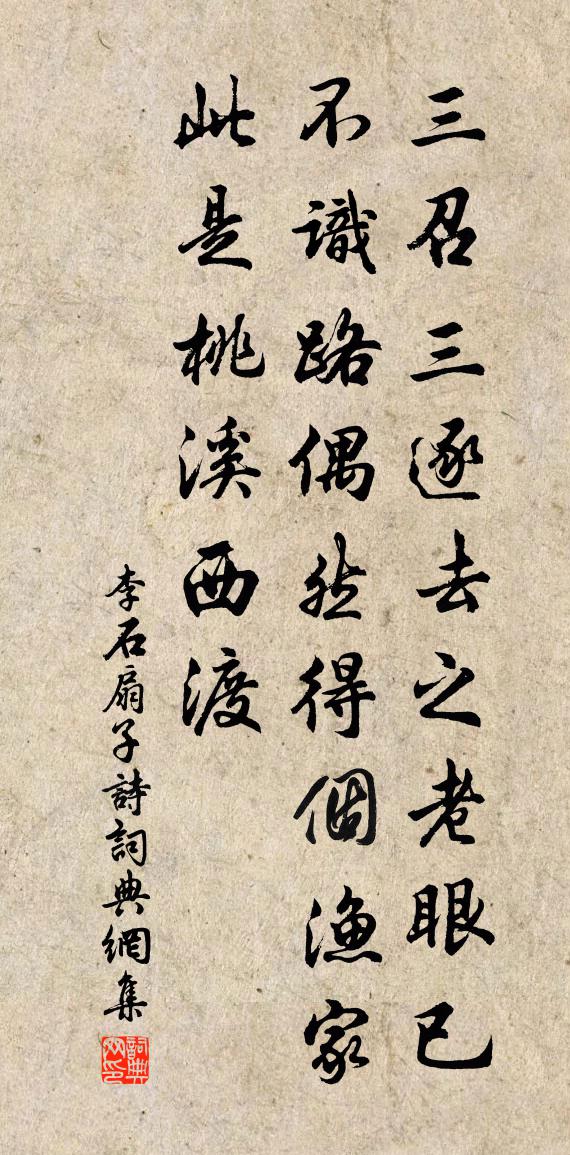 三召三逐去之老眼已
不識路偶然得個漁家
此是桃溪西渡
李石扇子詩詞典網集
詞典網印